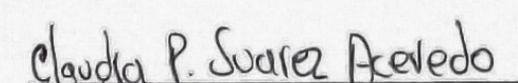 Claudia P. Suarez Acevedo